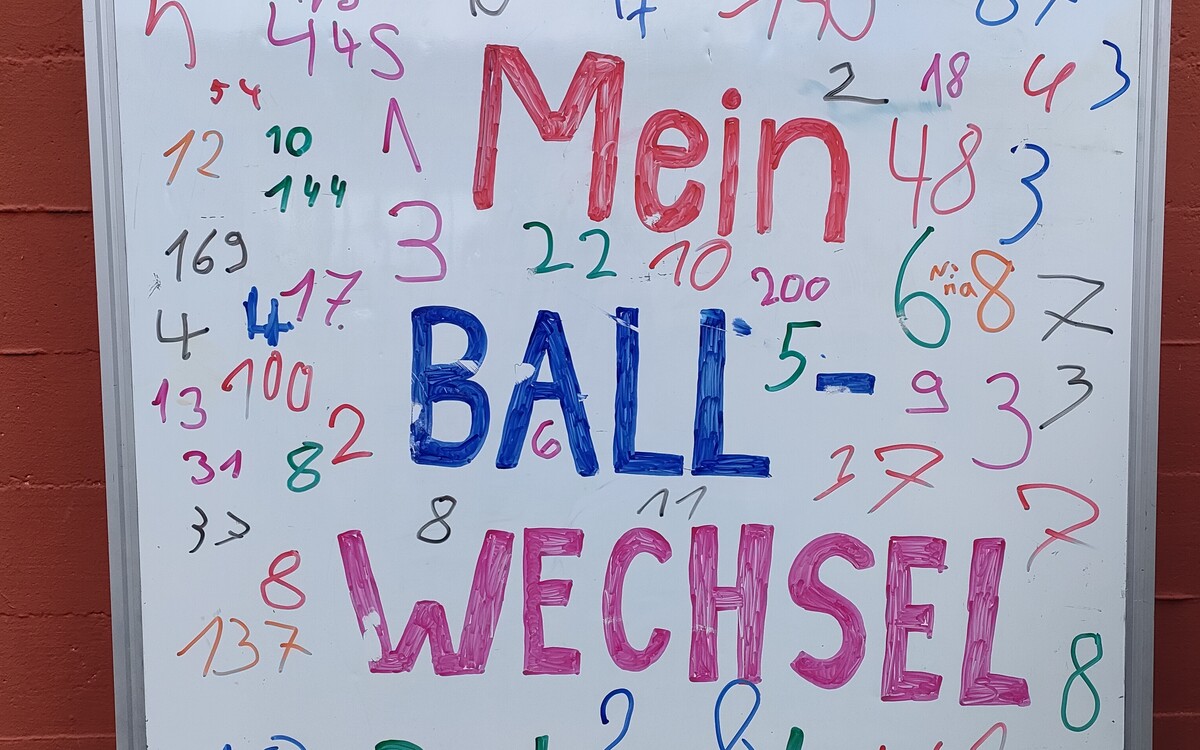 445
Mein
2
18
4
3
54
12
10
1
48
3
144
3
22
10
169
17
200
6
Ni
na
8
7
4
4
BALL-
5
13
100
9
3
3
2
6
31
8
17
7
8
11
37
WECHSEL
8
137
8